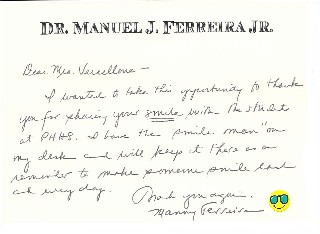 DR. MANUEL J. FERREIRA JR.
Dear Mrs. Vercellone –
I wanted to take this opportunity to thank
you for sharing your smile with the students
at PHHS. I have the "smile man" on
my desk and will keep it there as a
reminder to make someone smile each
and every day.
Thank you again,
Manny Ferreira